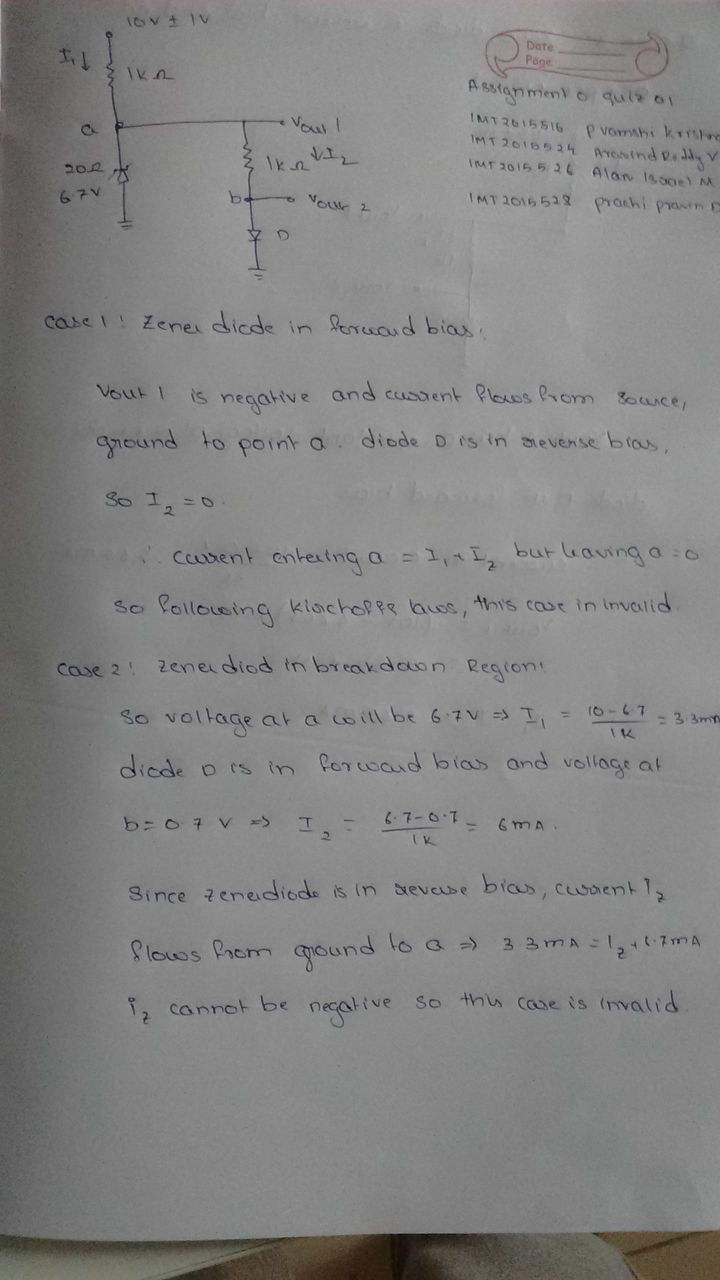 10V ± 1V
I₁ ↓
1KΩ
a
Vout 1
20Ω
6.7V
1KΩ ↓I₂
b
Vout 2
D
Date
Page
Assignment o quiz 01
IMT2015516 P vamshi Krishna
IMT2015524 Aravind Reddy V
IMT2015526 Alan Israel M
IMT2015528 prachi
case 1: Zener diode in forward bias:
Vout 1 is negative and current flows from source,
ground to point a. diode D is in reverse bias,
so I₂ = 0.
∴ current entering a = I₁ + I_z but leaving a = 0
so following Kirchoffs laws, this case in invalid.
case 2: zener diod in breakdown Region:
so voltage at a will be 6.7V ⇒ I₁ = (10-6.7)/1K = 3.3mA
diode D is in forward bias and vollage at
b = 0.7 V ⇒ I₂ = (6.7-0.7)/1K = 6mA.
Since zenerdiode is in reverse bias, current I_z
flows from ground to a ⇒ 3.3mA = I_z + 6.7mA
i_z cannot be negative so this case is invalid.